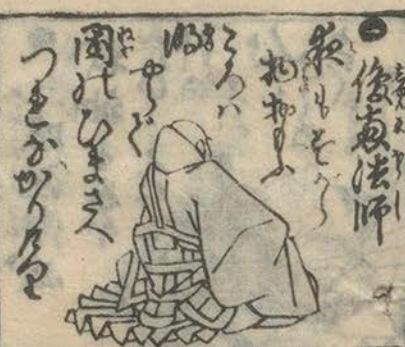 俊恵法師
夜もすがら
物おもふ
ころハ
明やらで
閨のひまさへ
つれなかりけり